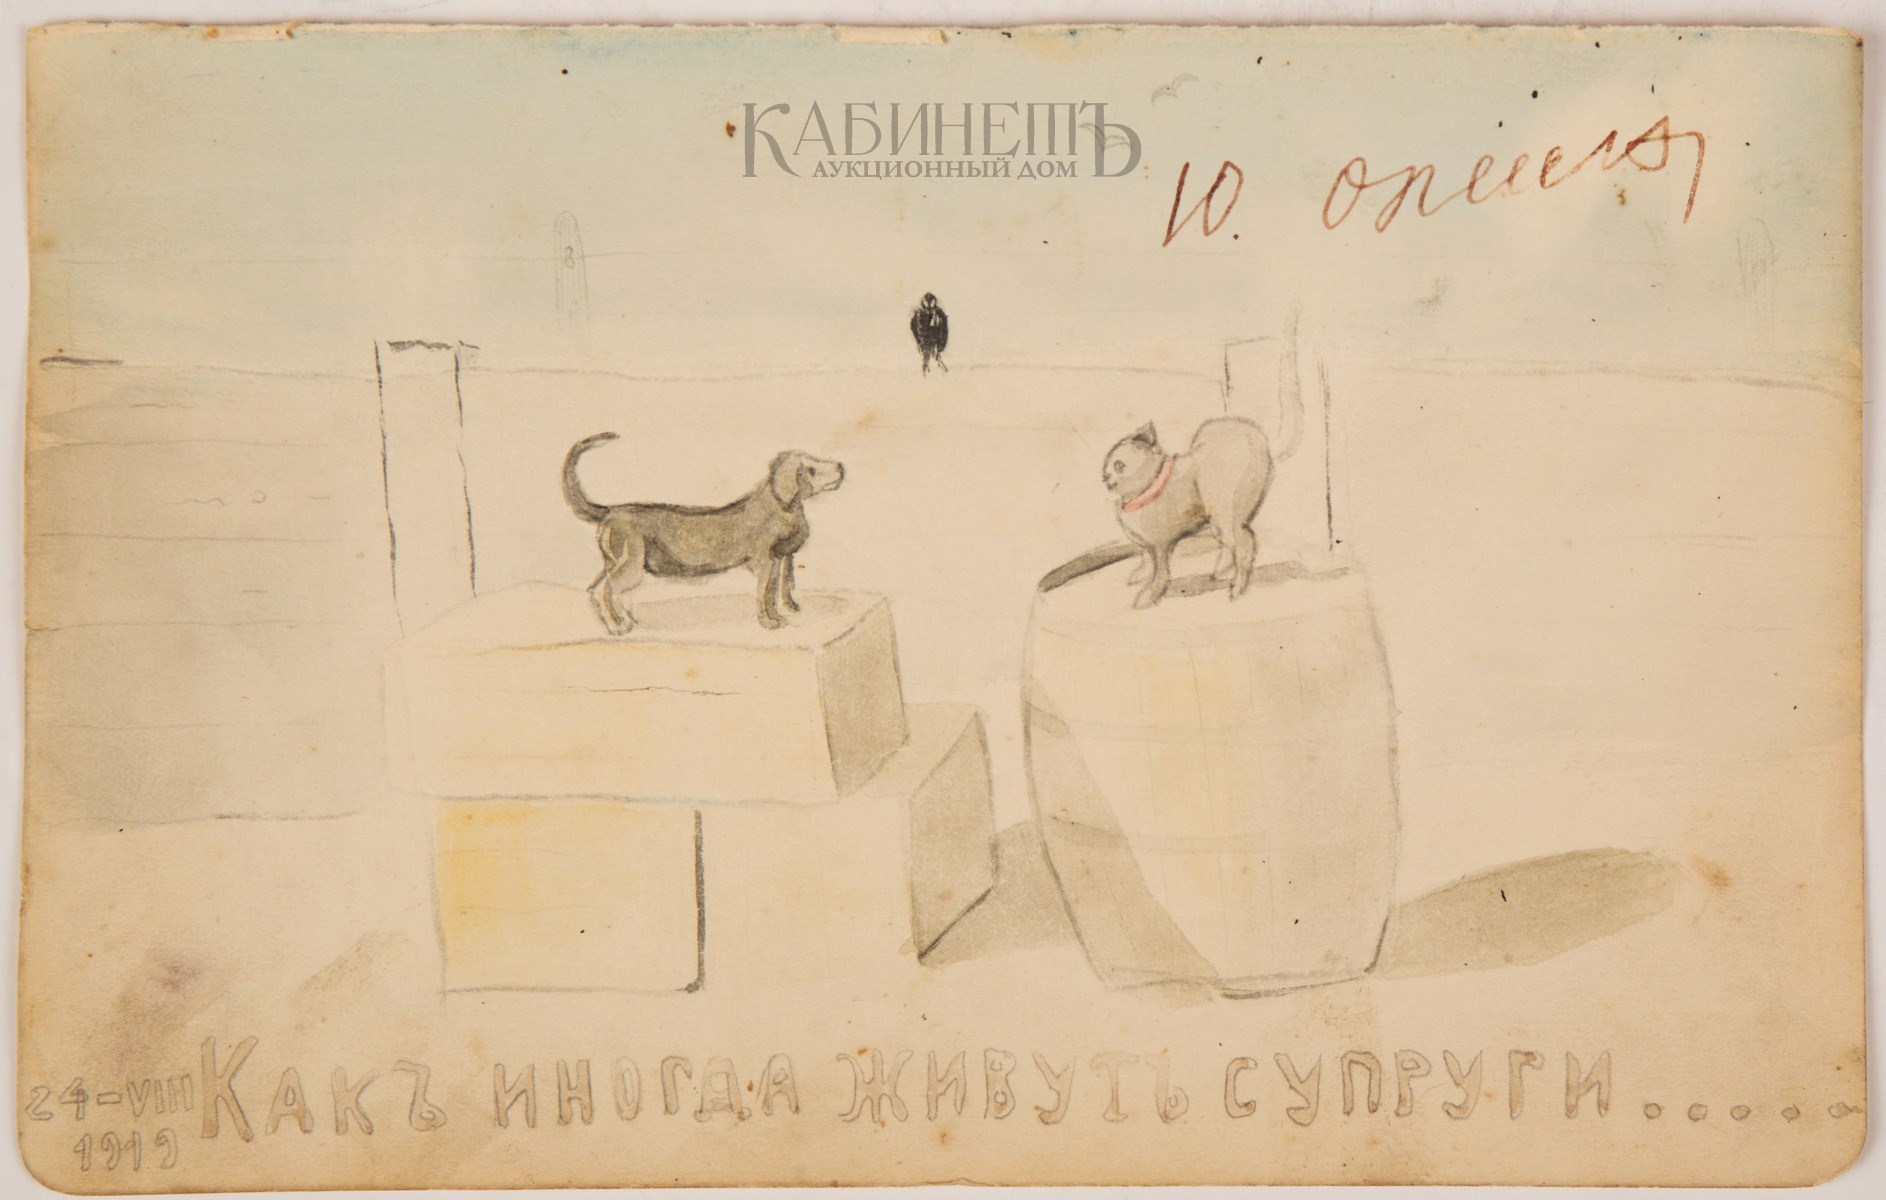 КАБИНЕТЪ
АУКЦИОННЫЙ ДОМ
Ю.
8
24-VIII
1919
Какъ иногда живутъ супруги.....